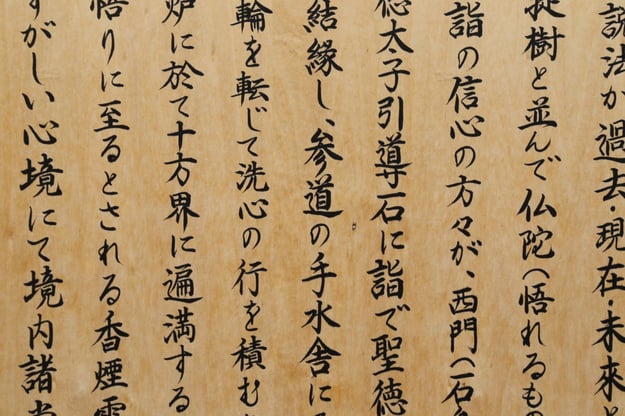 説法が過去・現在・未来
提樹と並んで仏陀（悟れるもの
詣の信心の方々が、西門（石
徳太子引導石に詣で聖徳
結縁し、参道の手水舎に
輪を転じて洗心の行を積む
炉に於て十方界に遍満する
悟りに至るとされる香煙
すがしい心境にて境内諸